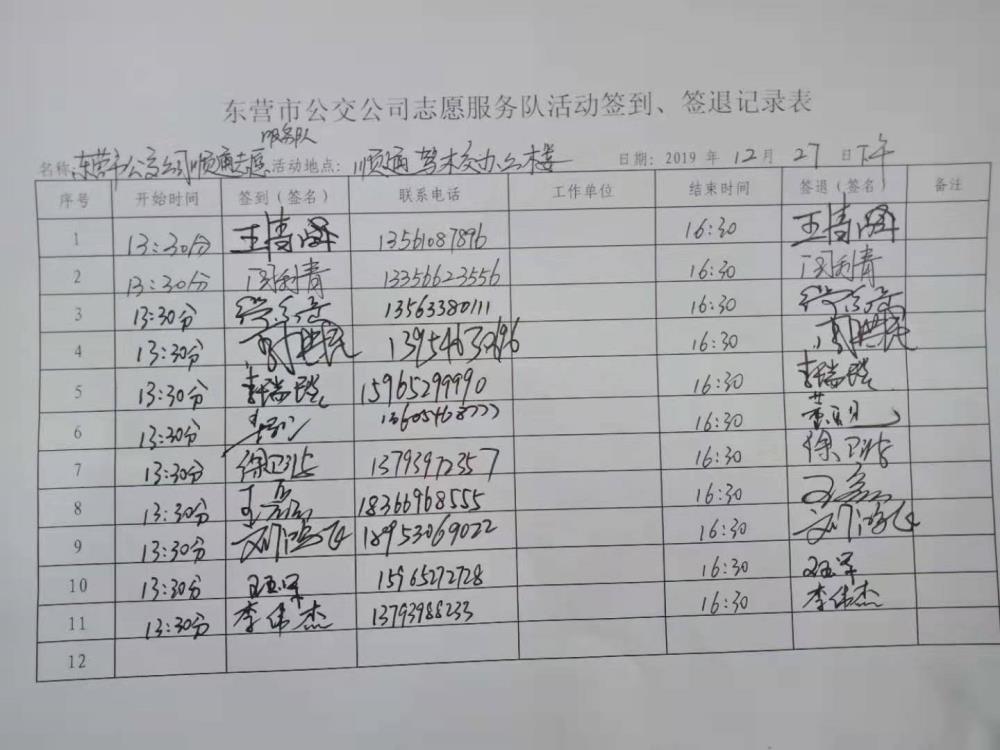 东营市公交公司志愿服务队活动签到、签退记录表
服务队
名称:东营市公交公司顺通志愿 活动地点: 顺通驾校办公楼 日期: 2019 年 12 月 27 日下午
序号 开始时间 签到(签名) 联系电话 工作单位 结束时间 签退(签名) 备注
1 13:30分 13561087896 16:30
2 13:30分 闫利青 13356623556 16:30 闫利青
3 13:30分 13563380111 16:30
4 13:30分 16:30
5 13:30分 李瑞强 15965299990 16:30 李瑞强
6 13:30分 16:30
7 13:30分 徐卫洁 13793972357 16:30 徐卫洁
8 13:30分 18366968555 16:30
9 13:30分 刘鸿飞 18953069022 16:30 刘鸿飞
10 13:30分 15965272728 16:30
11 13:30分 李伟杰 13793988233 16:30 李伟杰
12